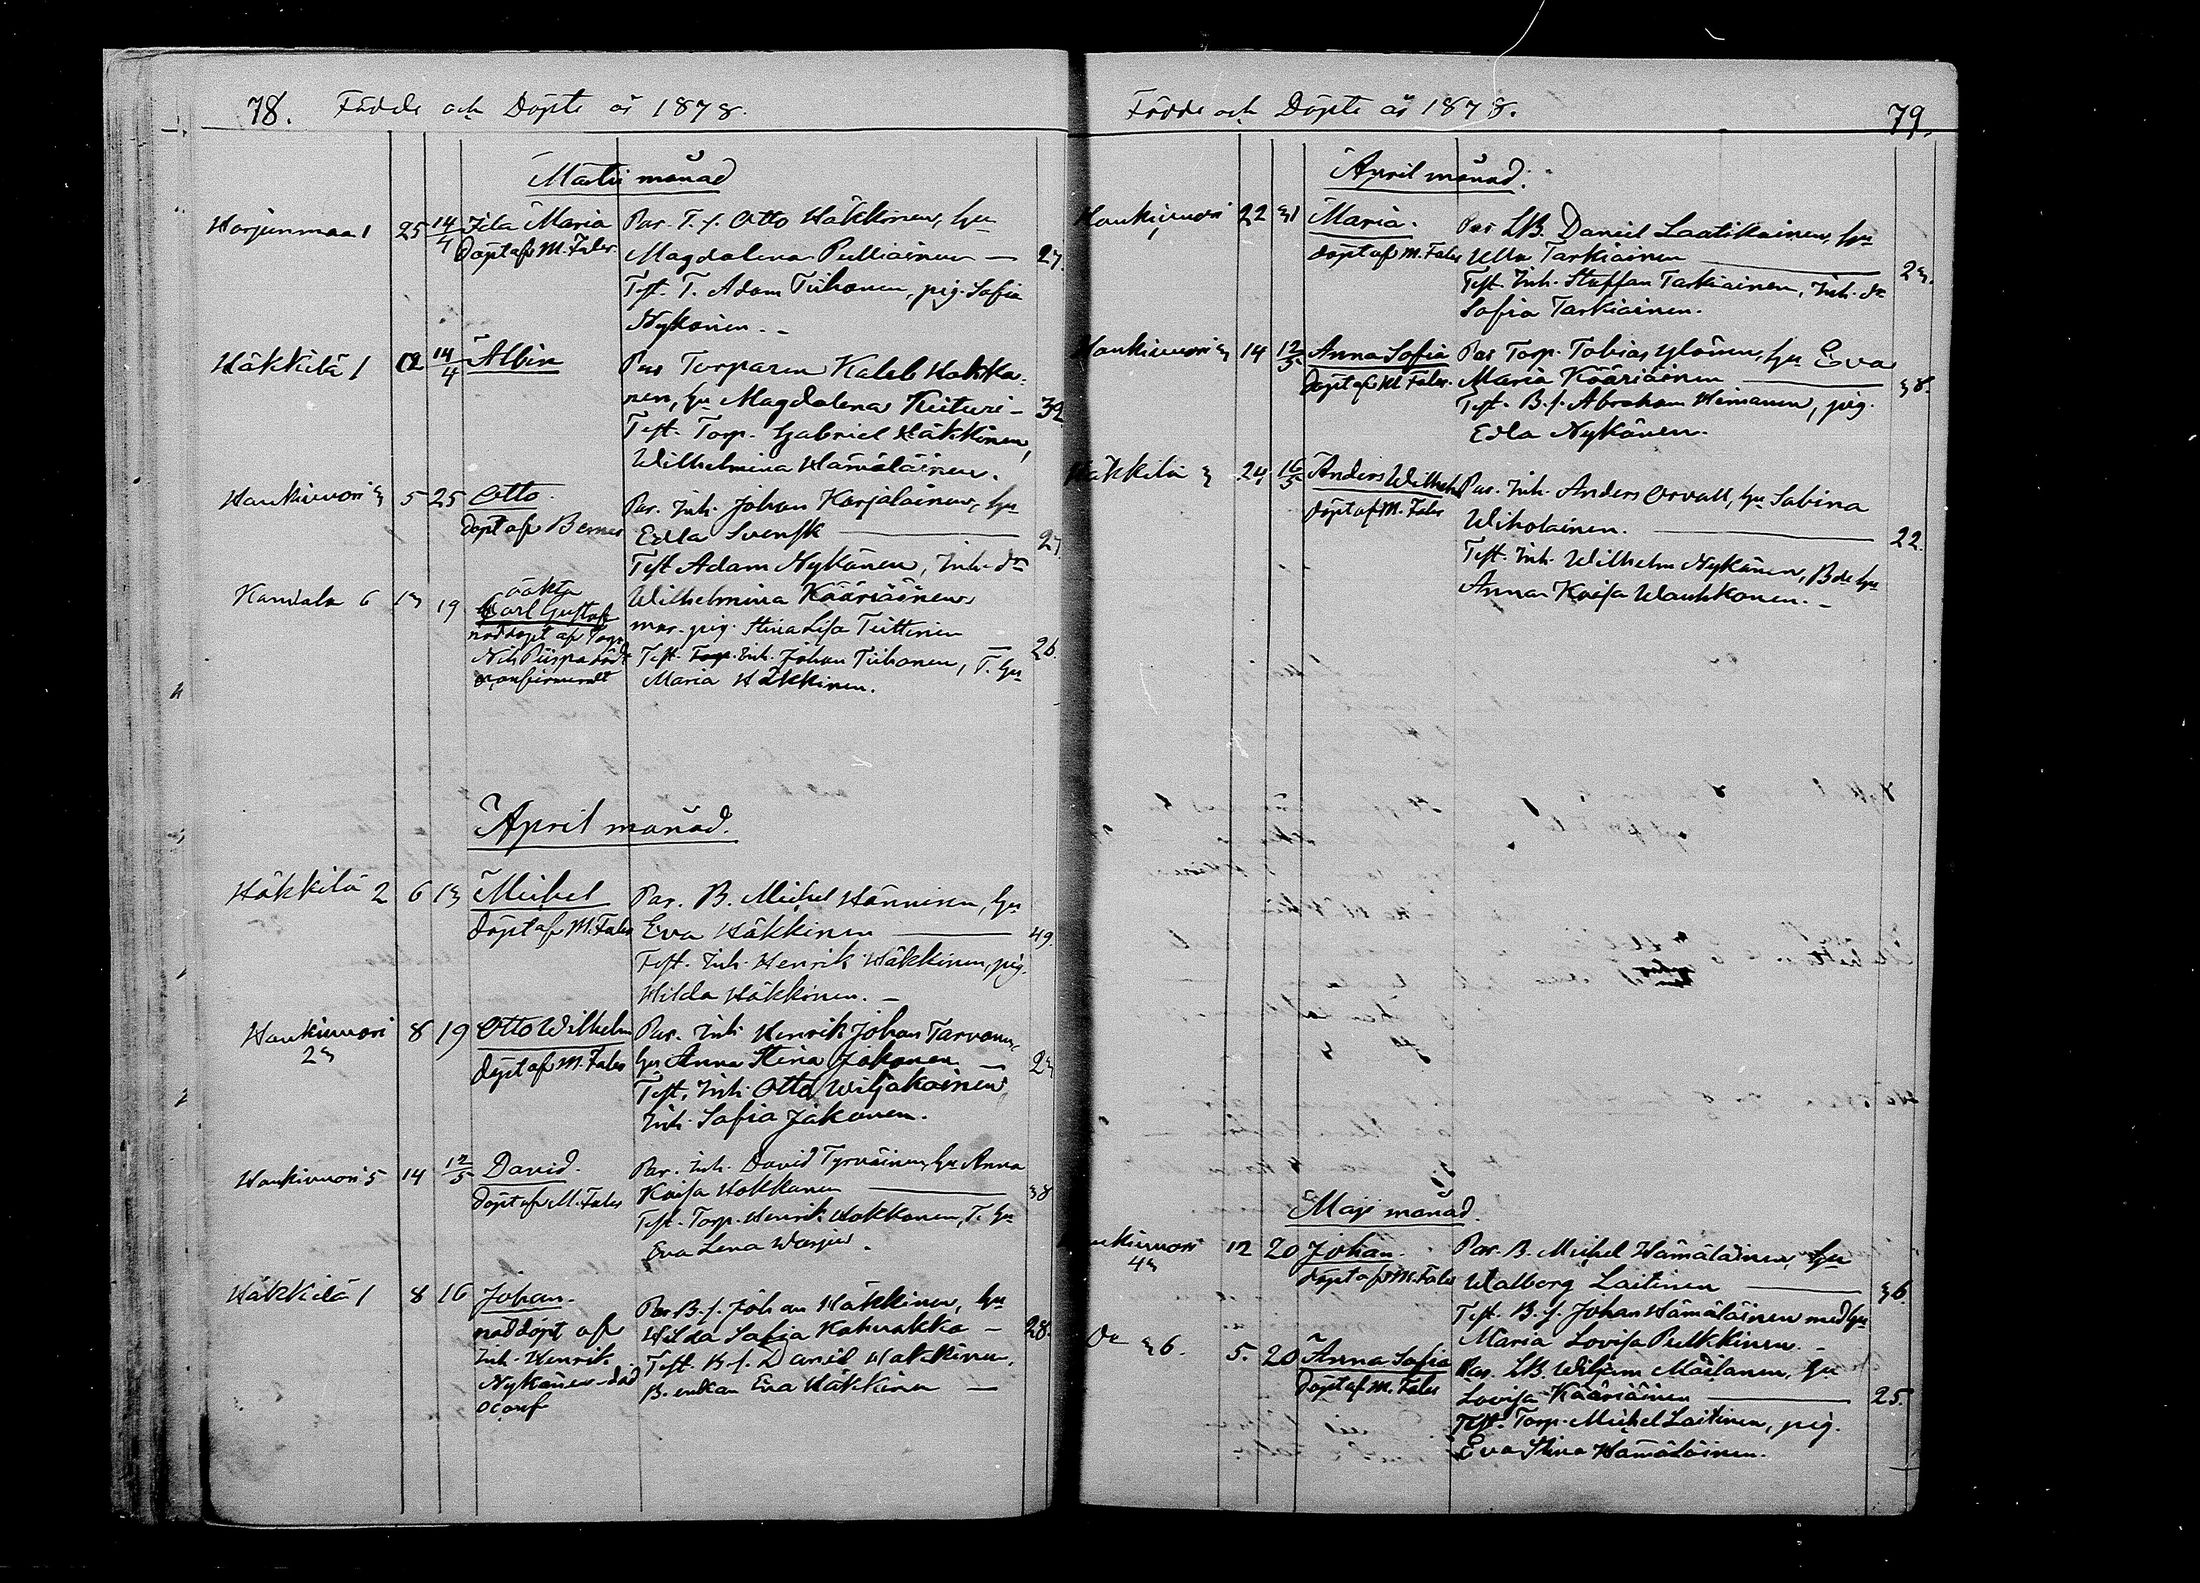 78. Födde och Döpte år 1878.
Martii månad
Harjunmaa 1 25 14/4 Ida Maria Par. T. f. Otto Häkkinen, hu
Döpt af M. Faler. Magdalena Pulliainen — 27.
Test. T. Adam Tiihonen, pig. Sofia
Nykänen. -
Häkkilä 1 12 14/4 Albin Par Torparen Kaleb Hokka-
nen, hu Magdalena Kuituri - 39
Test. Torp. Gabriel Häkkinen,
Wilhelmina Hämäläinen.
Haukivuori 3 5 25 Otto. Par. Inh. Johan Karjalainen, hu
döpt af Berner Edla Svensk — 27
Test Adam Nykänen, Inh. dr
Wilhelmina Kääriäinen
Kantala 6 13 19 oäkta
Carl Gustaf mor. pig. Stina Lisa Tuittinen — 26.
nöddöpt af Torp.
Nils Piispa död Test. Torp. Inh. Johan Tiihonen, T. hu
oconfirmerdt Maria Häkkinen.
April månad.
Häkkilä 2 6 13 Michel Par. B. Michel Hänninen, hu
döpt af M. Faler Eva Häkkinen — 49.
Test. Inh. Henrik Häkkinen, pig.
Hilda Häkkinen. -
Haukivuori 8 19 Otto Wilhelm Par. Inh Henrik Johan Tarvonen,
23 döpt af M. Faler hu Anna Stina Jakonen 23
Test. Inh. Otto Wiljakainen
Inh. Sofia Jakonen.
Haukivuori 5 14 12/5 David. Par. Inh. David Tyrväinen, hu Anna
döpt af M. Faler Kaisa Hokkanen — 38
Test. Torp. Henrik Hokkanen, T. hu
Eva Lena Warjus.
Häkkilä 1 8 16 Johan. Par B. f. Johan Häkkinen, hu
nöddöpt af Hilda Sofia Kahvakka - 28.
Inh. Henrik Test. B. f. Daniel Häkkinen,
Nykänen - död B. enkan Eva Häkkinen —
oconf
Födde och Döpte år 1878. 79.
April månad.
Haukivuori 22 31 Maria. Par LB. Daniel Laatikainen, hu
1 döpt af M. Faler Ulla Tarkiainen — 23.
Test Inh. Staffan Tarkiainen, Inh. dr
Sofia Tarkiainen.
Haukivuori 3 14 12/5 Anna Sofia Par Torp. Tobias Ylönen, hu Eva
döpt af M. Faler. Maria Kääriäinen — 38.
Test. B. f. Abraham Himanen, pig.
Edla Nykänen.
Häkkilä 3 24 16/5 Anders Wilhelm Par. Inh. Anders Orvall, hu Sabina
döpt af M. Faler Wiholainen. — 22.
Test. Inh. Wilhelm Nykänen, Bde hu
Anna Kaisa Wauhkonen. -
Maji månad.
Haukivuori 12 20 Johan. Par. B. Michel Hämäläinen, hu
43 döpt af M. Faler Walborg Laitinen — 36.
Test. B. f. Johan Hämäläinen med hu
Maria Lovisa Pulkkinen. -
do 36. 5. 20 Anna Sofia Par. LB. Wiljam Moilanen, hu
döpt af M. Faler Lovisa Kääriäinen — 25.
Test. Torp. Michel Laitinen, pig.
Eva Stina Hämäläinen.